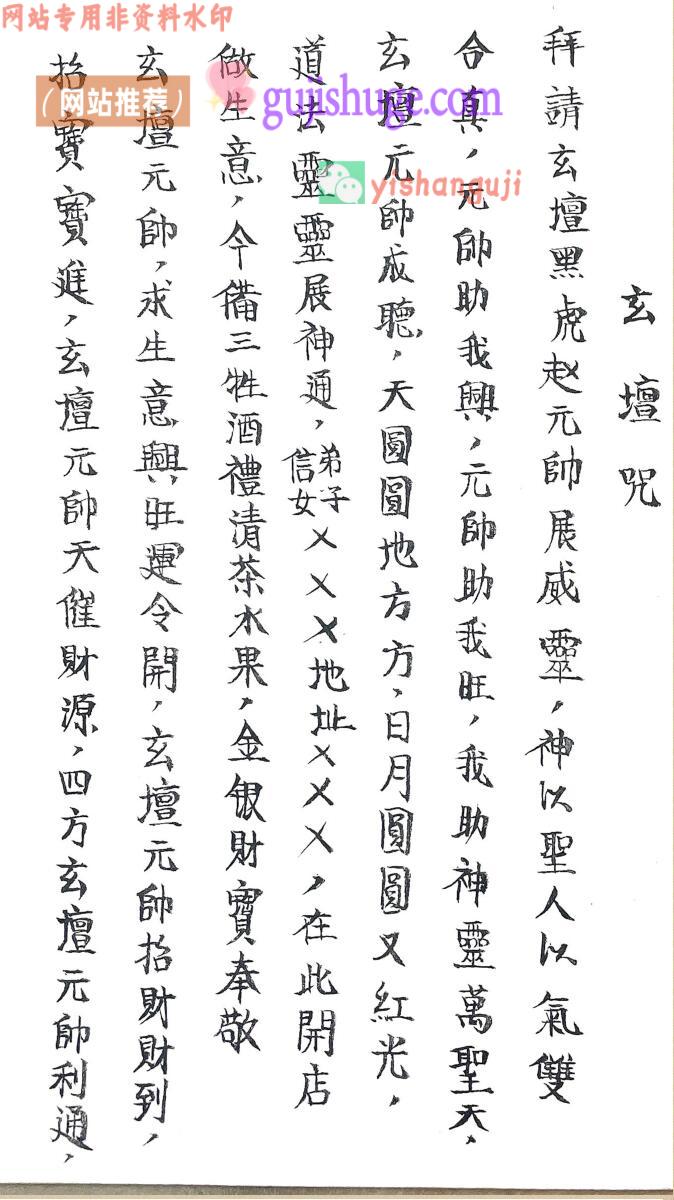 网站专用非资料水印
（网站推荐）
gujishuge.com
yishanguji
玄壇咒
拜請玄壇黑虎赵元帥展威靈，神以聖人以氣雙
合真，元帥助我興，元帥助我旺，我助神靈萬聖天，
玄壇元帥成聽，天圓圓地方方，日月圓圓又紅光，
道法靈靈展神通，弟子信女×××地址×××，在此開店
做生意，今備三牲酒禮清茶水果，金银財寶奉敬
玄壇元帥，求生意興旺運令開，玄壇元帥招財財到，
招寶寶進，玄壇元帥天催財源，四方玄壇元帥利通，